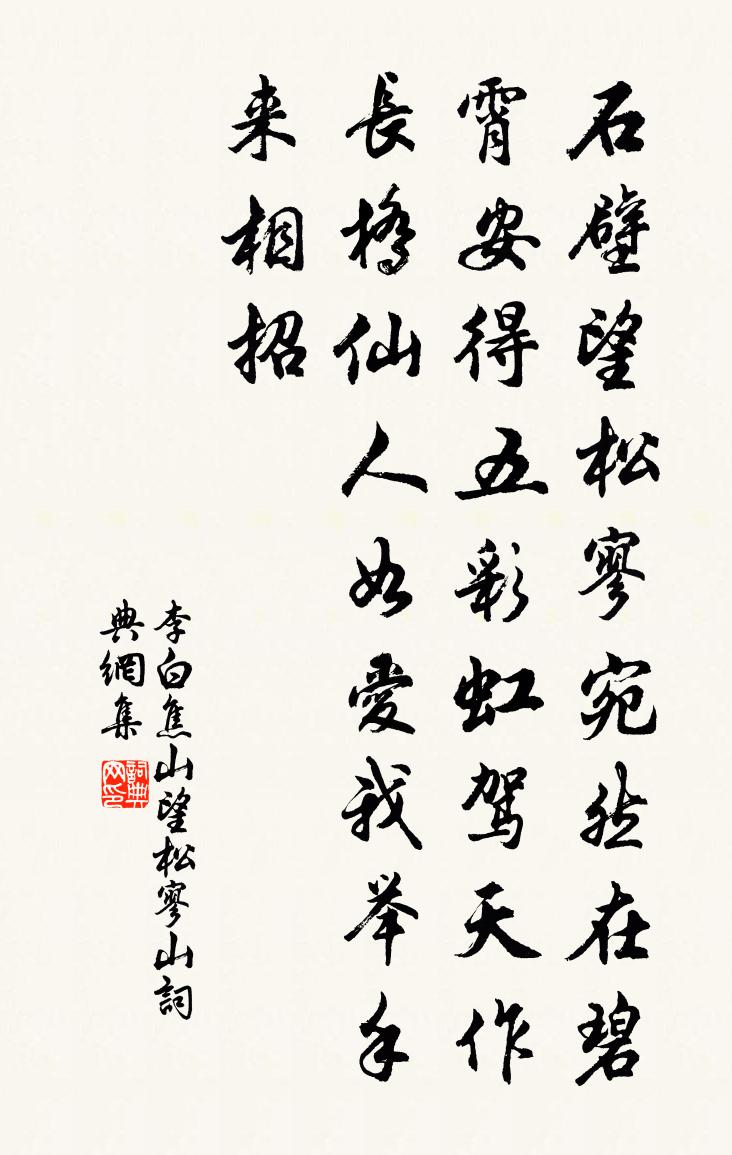 石壁望松寥宛然在碧
霄安得五彩虹駕天作
長橋仙人如愛我举手
来相招
李白焦山望松寥山詞
典網集
詞典
网印